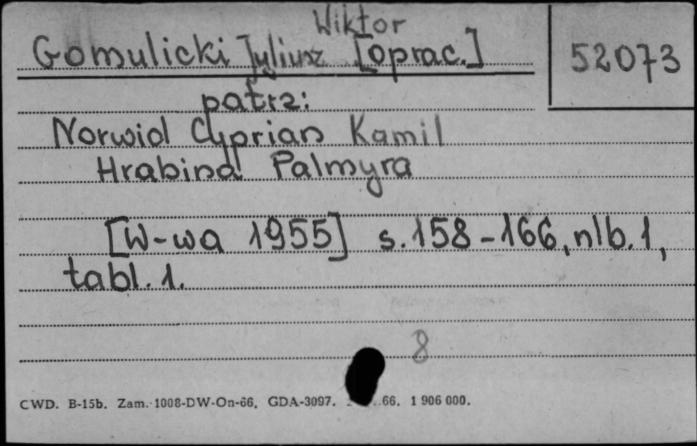 Wiktor
Gomulicki Juliusz [oprac.]
52073
patrz:
Norwid Cyprian Kamil
Hrabina Palmyra
[W-wa 1955] s. 158-166, nlb. 1,
tabl. 1.
8
CWD. B-15b. Zam. 1008-DW-On-66, GDA-3097. 66. 1 906 000.